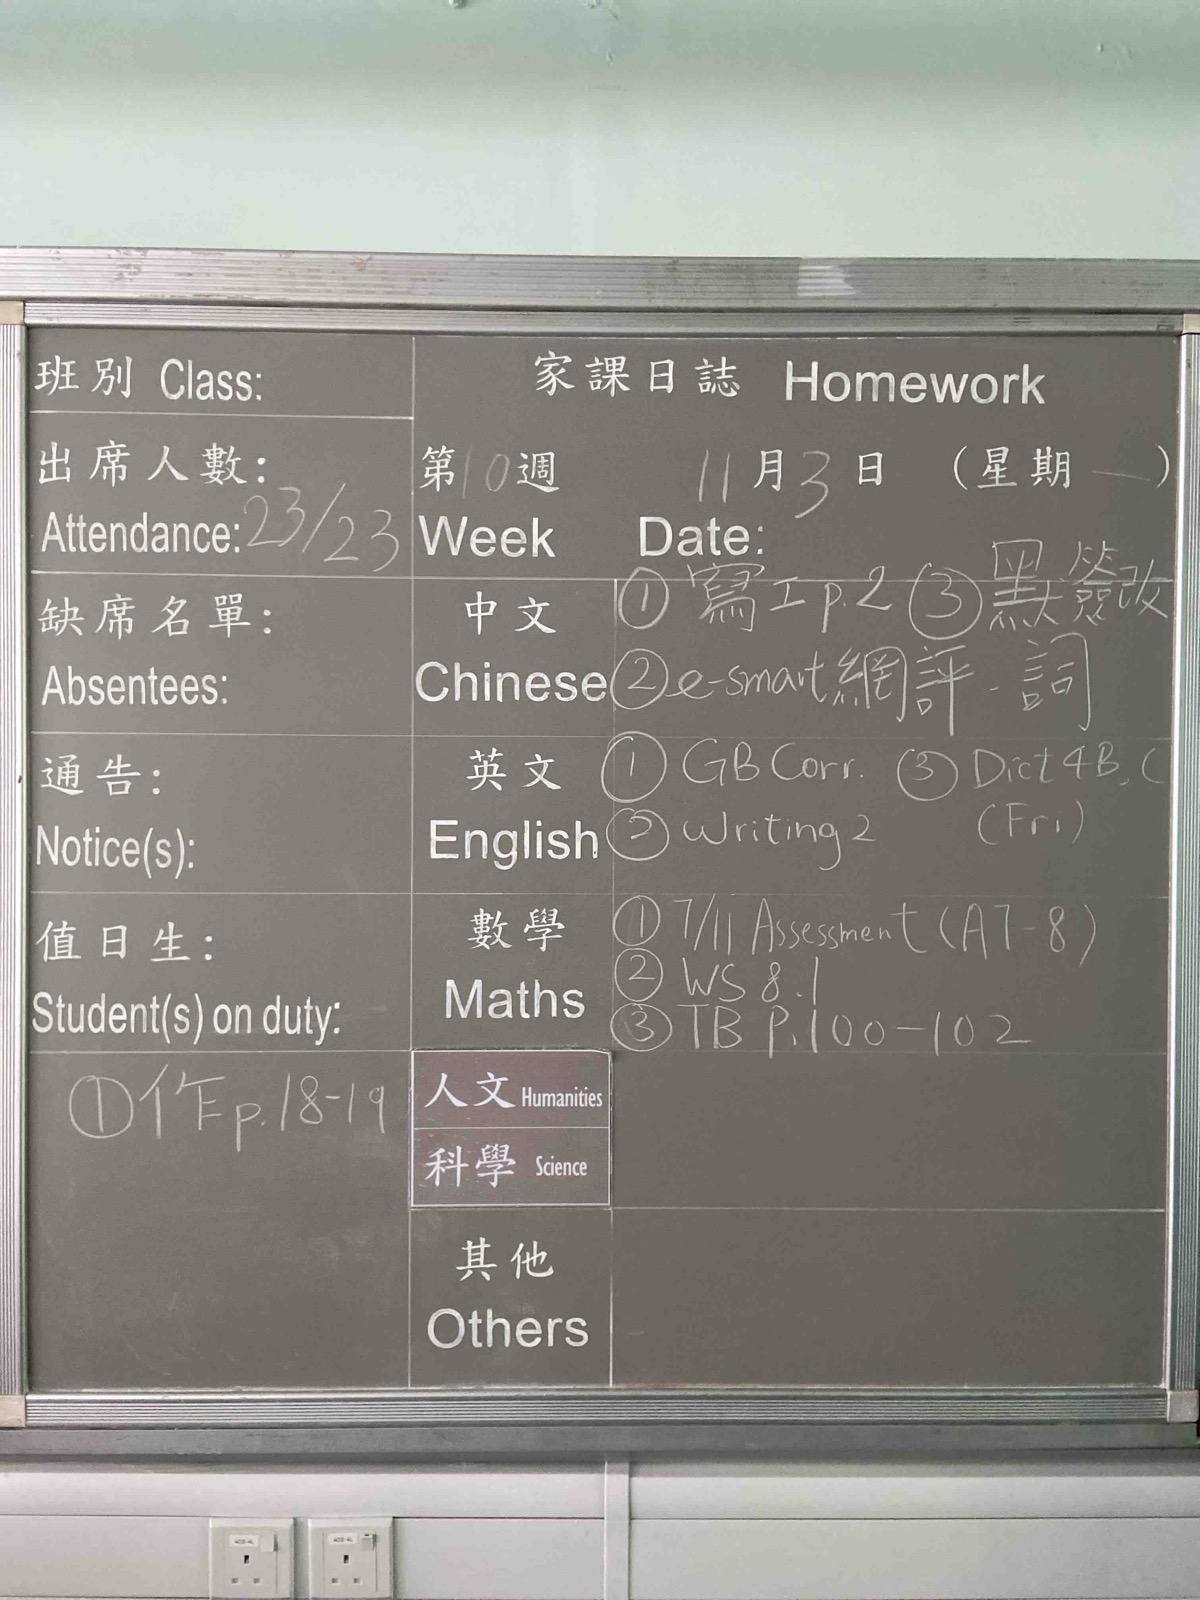 班別 Class:
家課日誌 Homework
出席人數:
Attendance: 23/23
第10週 11月3日 (星期一)
Week Date:
缺席名單:
Absentees:
中文
Chinese
① 寫工p.2 ③ 默簽改
② e-smart網評-詞
通告:
Notice(s):
英文
English
① GB Corr. ③ Dict 4B, C
② Writing 2 (Fri)
值日生:
Student(s) on duty:
數學
Maths
① 7/11 Assessment (A7-8)
② WS 8.1
③ TB P.100-102
① 作p.18-19
人文 Humanities
科學 Science
其他
Others